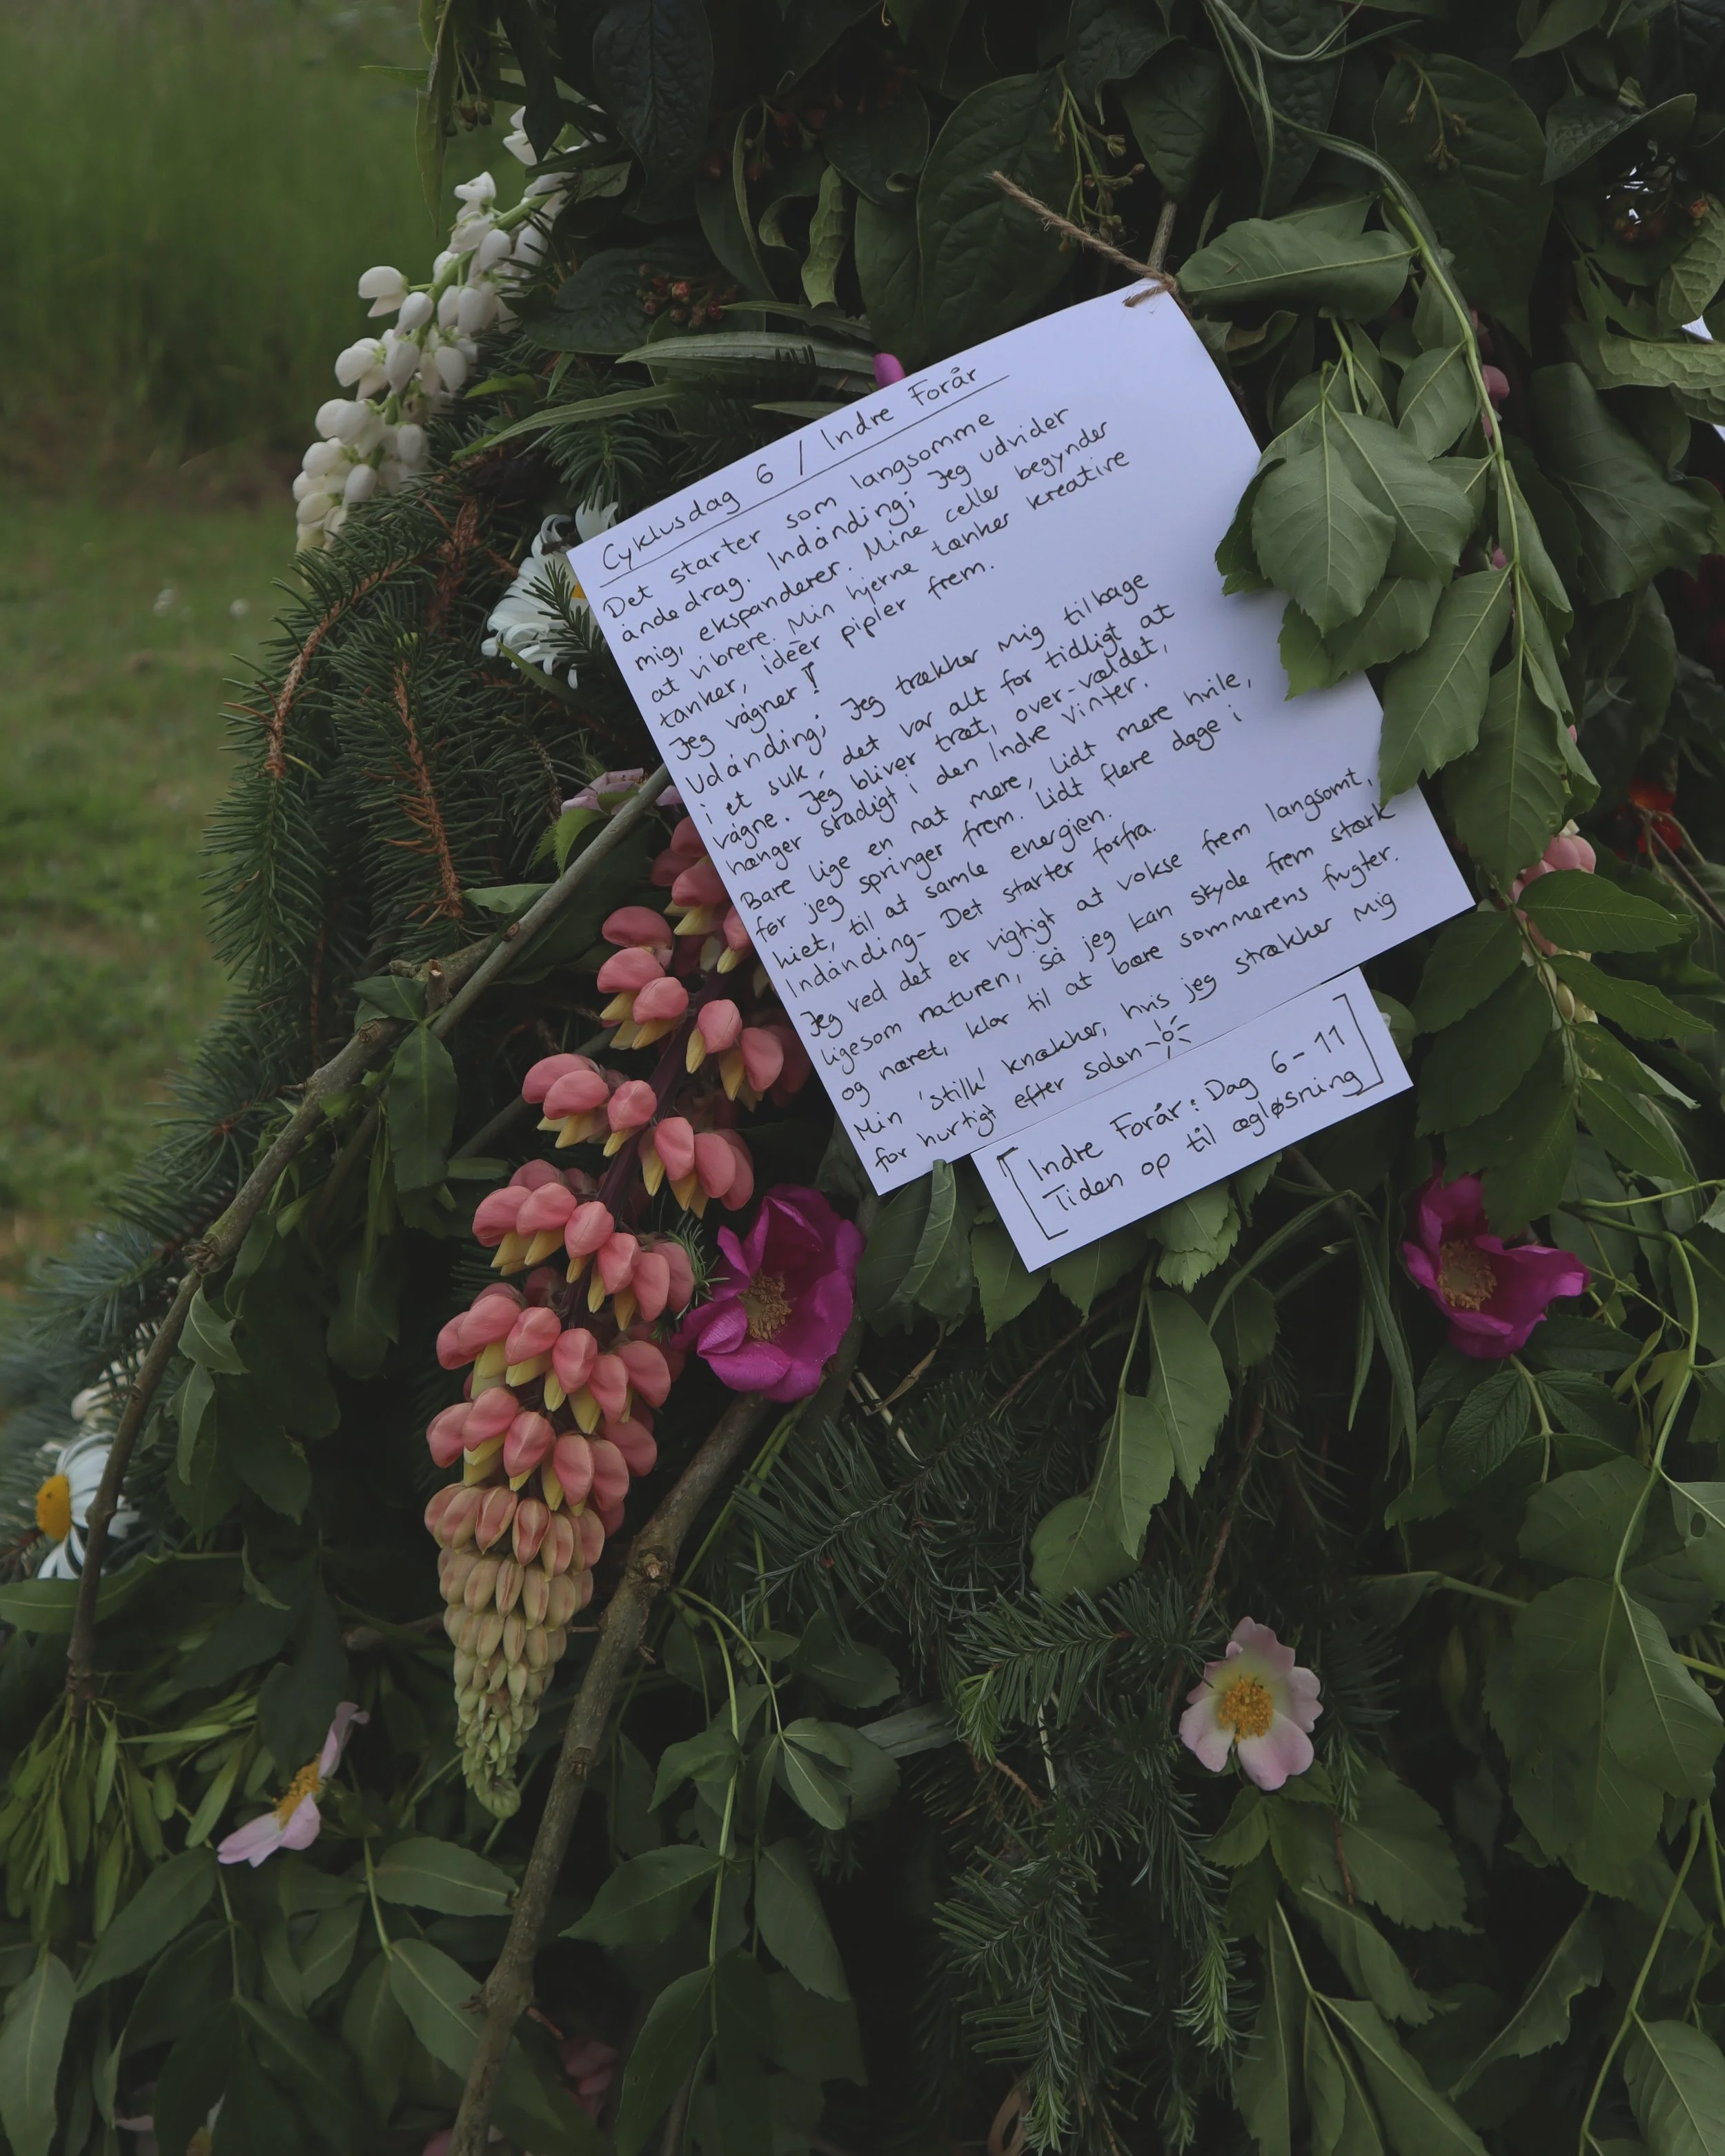 Cyklusdag 6 / Indre Forår
Det starter som langsomme
åndedrag. Indånding; Jeg udvider
mig, ekspanderer. Mine celler begynder
at vibrere. Min hjerne tænker kreative
tanker, idéer pipler frem.
Jeg vågner!
Udånding; Jeg trækker mig tilbage
i et suk, det var alt for tidligt at
vågne. Jeg bliver træt, over-vældet,
hænger stadigt i den Indre Vinter.
Bare lige en nat mere, lidt mere hvile,
før jeg springer frem. Lidt flere dage i
hiet, til at samle energien.
Indånding- Det starter forfra.
Jeg ved det er vigtigt at vokse frem langsomt,
ligesom naturen, så jeg kan skyde frem stærk
og næret, klar til at bære sommerens frugter.
Min 'stilk' knækker, hvis jeg strækker mig
for hurtigt efter solen
[Indre Forår: Dag 6-11
Tiden op til ægløsning]